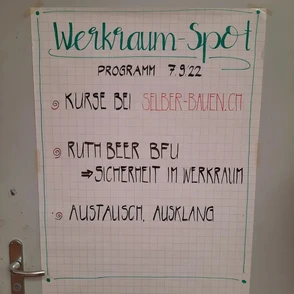 Werkraum-Spot
PROGRAMM 7.9.22
KURSE BEI SELBER-BAUEN.CH
RUTH BEER BFU
⇒ SICHERHEIT IM WERKRAUM
AUSTALISCH, AUSKLANG